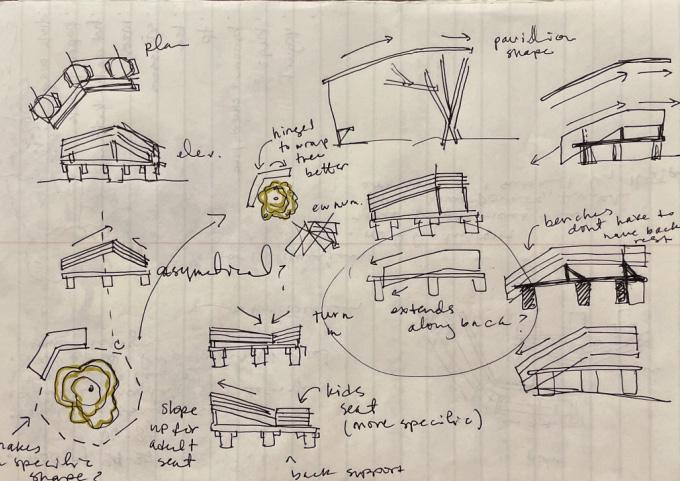 plan
pavillion
shape
hinged
to wrap
tree
better
elev.
benches
dont have to
have back
rest
asymetrical?
turn
in
extends
along back?
kids
seat
(more specific)
slope
up for
adult
seat
makes
specific
shape?
back support